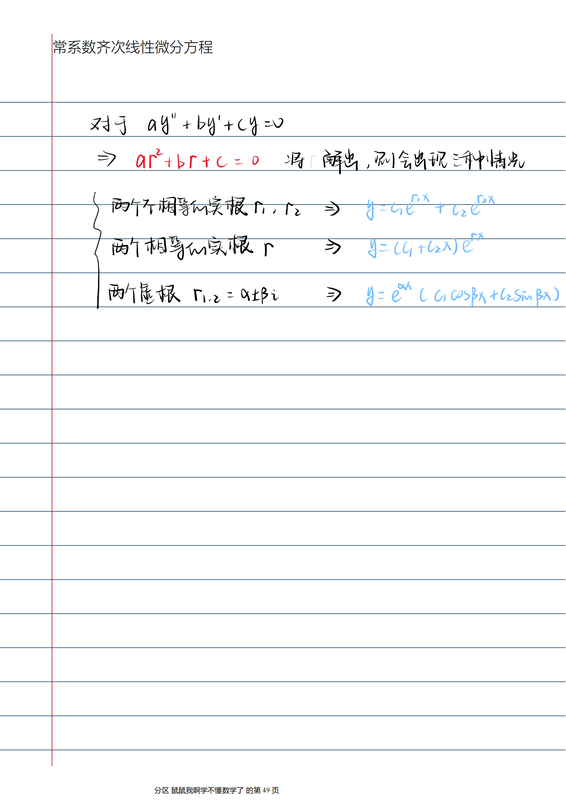 常系数齐次线性微分方程
对于 ay"+by'+cy=0
⇒ ar²+br+c=0 将 r 解出,则会出现三种情况
两个不相等的实根 r₁,r₂ ⇒ y=c₁e^{r₁x}+c₂e^{r₂x}
两个相等的实根 r ⇒ y=(c₁+c₂x)e^{rx}
两个虚根 r₁,₂=α±βi ⇒ y=e^{αx}(c₁cosβx+c₂sinβx)
分区 鼠鼠我啊学不懂数学了 的第 49 页